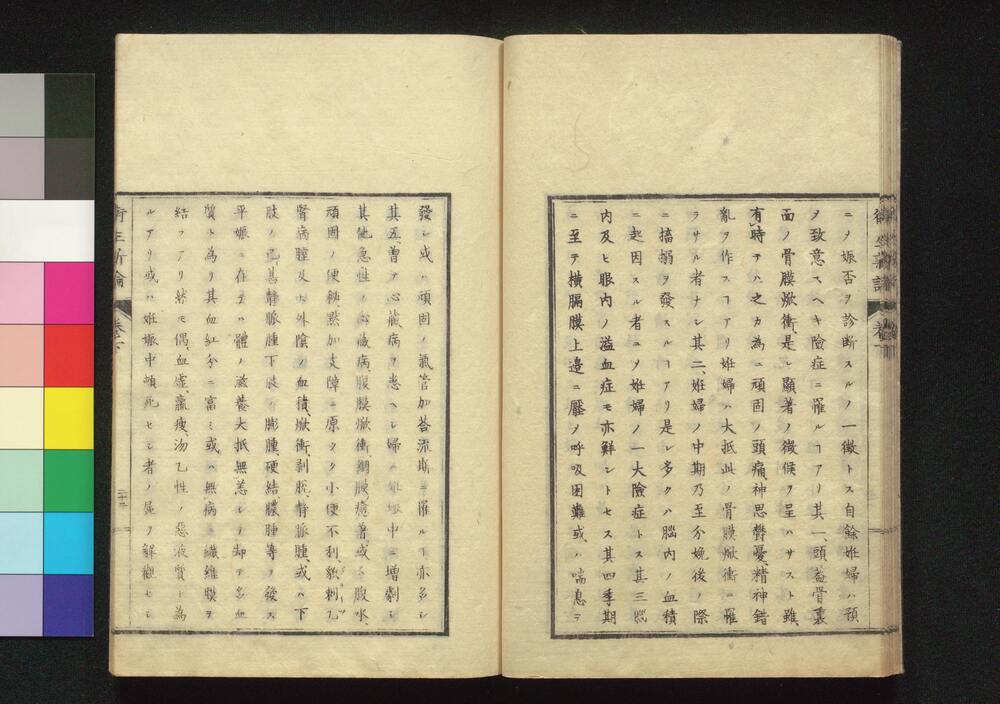 ニメ娠否ヲ診断スルノ一徴トス自餘姙婦ハ預
メ致意スヘキ險症ニ罹ルヿアリ其一、頭蓋骨裏
面ノ骨膜焮衝是レ顯著ノ徴候ヲ呈ハサスト雖、
有時テハ之カ為ニ頑固ノ頭痛、神思欝憂、精神錯
亂ヲ作スヿアリ姙婦ハ大抵此ノ骨膜焮衝ニ罹
ラサル者ナシ其二、姙婦ノ中期乃至分娩後ノ際
ニ搐搦ヲ發スルヿアリ是レ多クハ腦内ノ血積
ニ起因スル者ニメ姙婦ノ一大險症トス其三腦
内及ヒ眼内ノ溢血症モ亦鮮シトセス其四季期
ニ至テ横膈膜上邉ニ壓メ呼吸困難或ハ喘息ヲ
發シ或ハ頑固ノ氣管加荅流斯ニ罹ルヿ亦多シ
其五、曽テ心臓病ヲ患ヘシ婦ハ姙娠中ニ増劇シ
其他急性ノ心臓病、腹膜焮衝、網膜癒著、或ハ腹水、
頑固ノ便秘黙加支障ニ原ク小便不利、貌刺乙
腎病、膣及ヒ外陰ノ血積、焮衝、剥脱、静脈腫、或ハ下
肢ノ已甚静脈腫下肢ノ膨腫、硬結、膿腫等ヲ發ス
平娠ニ在テハ體ノ滋養大抵無恙シテ却テ多血
質ト為リ其血紅分ニ富ミ或ハ無病ニ纎維膜ヲ
結フアリ然モ偶血虚、羸痩、汤乙性ノ惡液質ト為
ルアリ或ハ姙娠中頓死セシ者ノ屍ヲ觧觀セシ
衛生新論 巻下